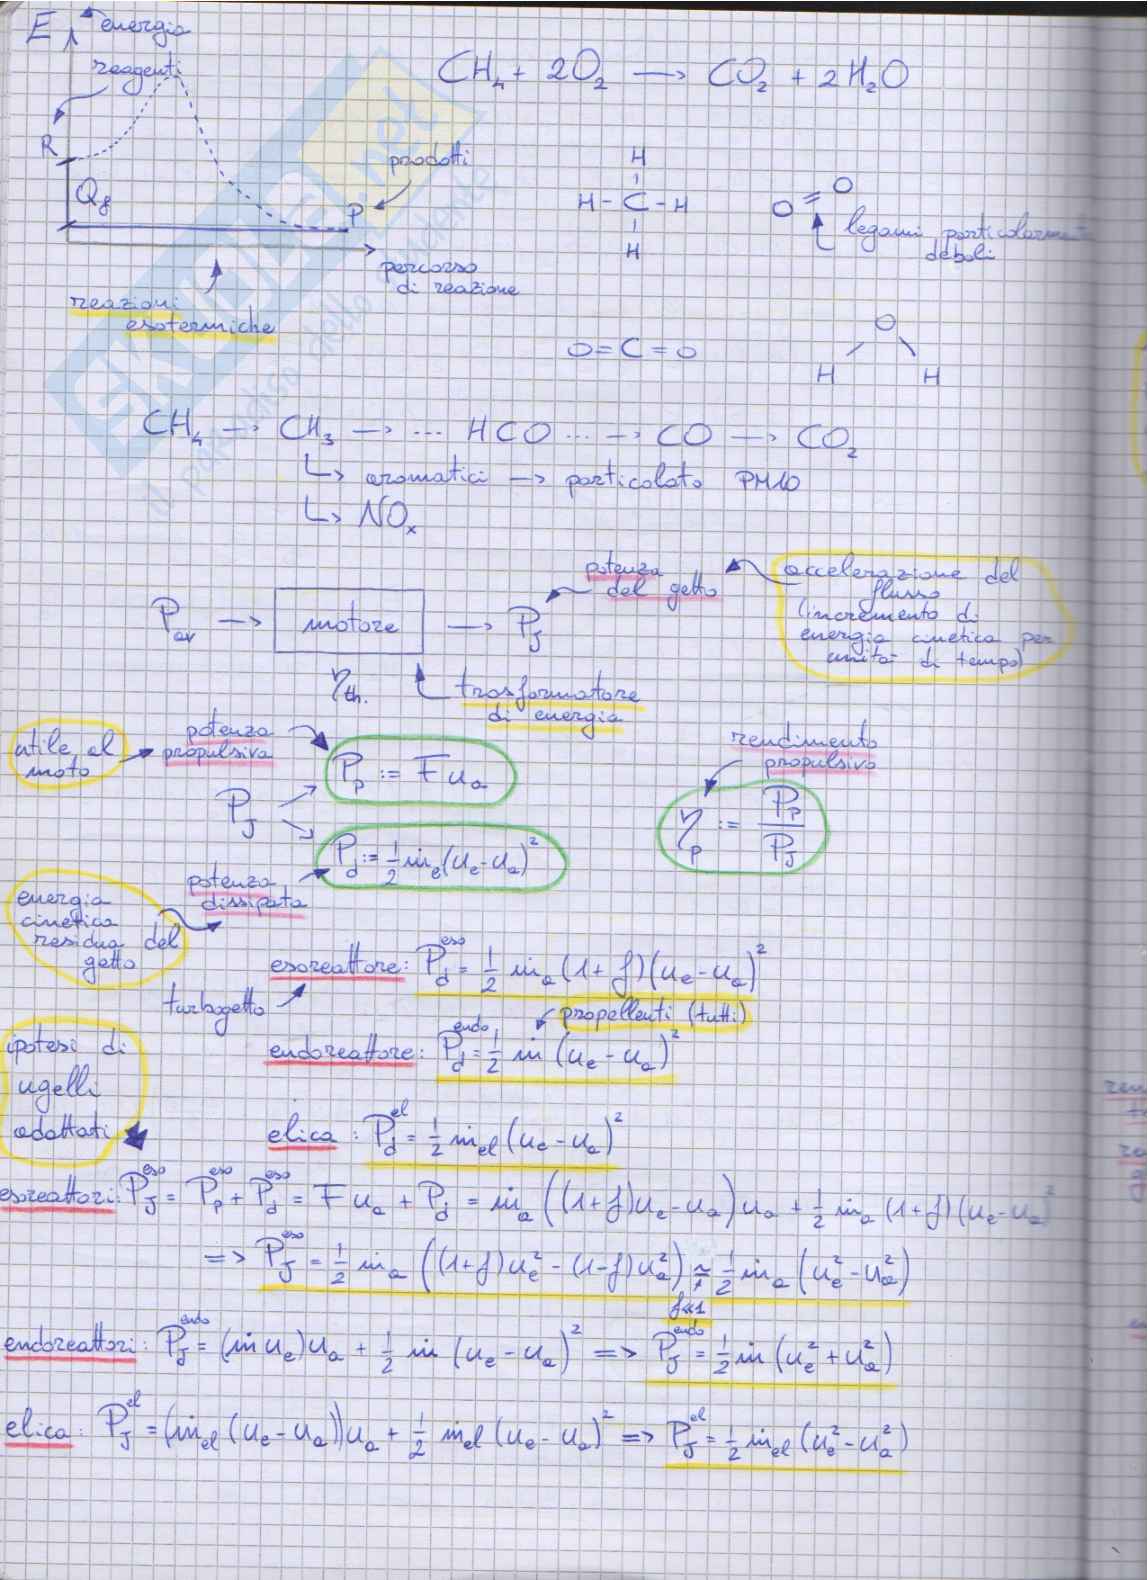 E energia
reagenti
R
Q_f
prodotti
P
percorso
di reazione
reazioni
esotermiche
CH₄ + 2O₂ → CO₂ + 2H₂O
H
H - C - H
H
O = O
legami particolarmente
deboli
O = C = O
O
H H
CH₄ → CH₃ → ... HCO ... → CO → CO₂
↳ aromatici → particolato PM10
↳ NOₓ
P_av → motore → P_J
η_th.
potenza
del getto
accelerazione del
flusso
(incremento di
energia cinetica per
unità di tempo)
trasformatore
di energia
utile al
moto
potenza
propulsiva
P_p := F u_a
P_J
P_d := 1/2 ṁ_e (u_e - u_a)²
rendimento
propulsivo
η_p := P_p / P_J
potenza
dissipata
energia
cinetica
residua del
getto
esoreattore: P_d^eso = 1/2 ṁ_a (1+f)(u_e - u_a)²
turbogetto
propellenti (tutti)
endoreattore: P_d^endo = 1/2 ṁ (u_e - u_a)²
ipotesi di
ugelli
adattati
elica: P_d^el = 1/2 ṁ_el (u_e - u_a)²
esoreattori: P_J^eso = P_p^eso + P_d^eso = F u_a + P_d = ṁ_a ((1+f)u_e - u_a) u_a + 1/2 ṁ_a (1+f)(u_e - u_a)²
=> P_J^eso = 1/2 ṁ_a ((1+f)u_e² - (1-f)u_a²) ≈ 1/2 ṁ_a (u_e² - u_a²)
f≪1
endoreattori: P_J^endo = (ṁ u_e) u_a + 1/2 ṁ (u_e - u_a)² => P_J^endo = 1/2 ṁ (u_e² + u_a²)
elica: P_J^el = (ṁ_el (u_e - u_a)) u_a + 1/2 ṁ_el (u_e - u_a)² => P_J^el = 1/2 ṁ_el (u_e² - u_a²)